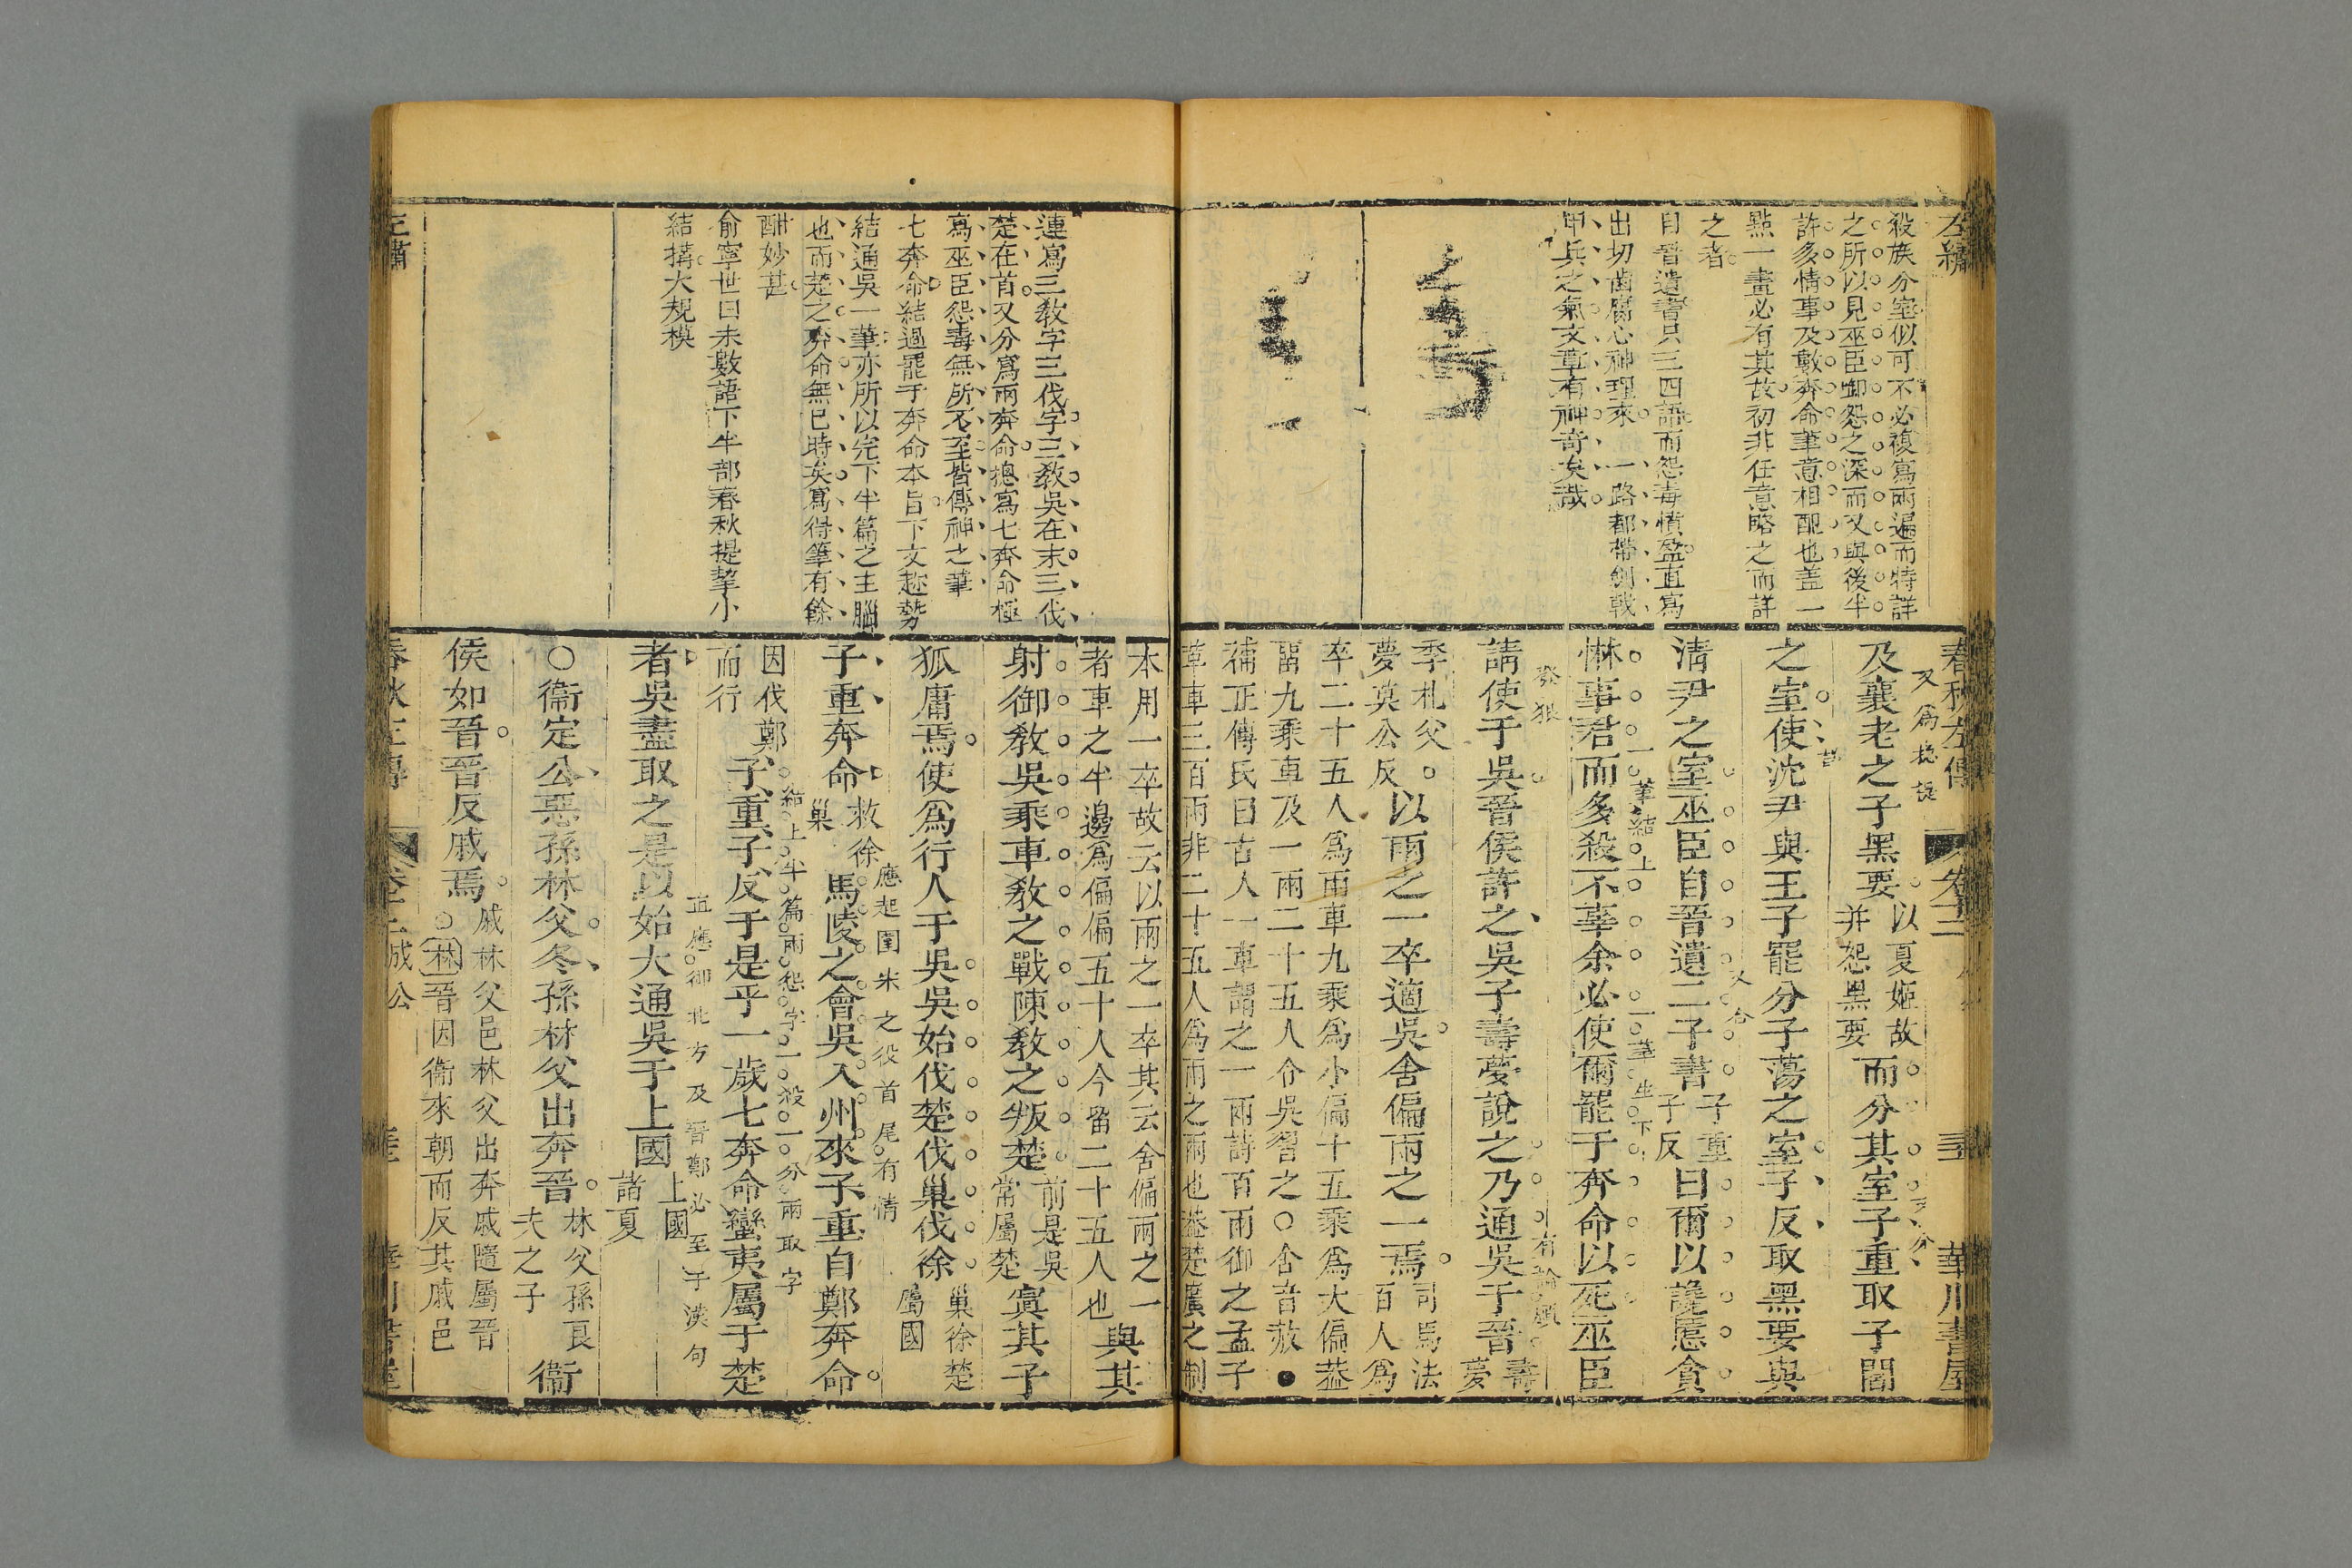 左繡
殺族分室似可不必複寫兩遍而特詳
之所以見巫臣啣怨之深而又與後半
許多情事及數奔命筆意相配也蓋一
點一畫必有其故初非任意略之而詳
之者
自晉遺書只三四語而怨毒憤盈直寫
出切齒腐心神理來 一路都帶劍戟
甲兵之氣文章有神奇矣哉
春秋左傳
華川書屋
又爲總提
及襄老之子黑要以夏姬故并怨黑要而分其室子重取子閻
之室使沈尹與王子罷分子蕩之室子反取黑要與
又合
清尹之室巫臣自晉遺二子書子重子反曰爾以讒慝貪
一筆結上 一筆生下
惏事君而多殺不辜余必使爾罷于奔命以死巫臣
發狠
請使于吳晉侯許之吳子壽夢說之乃通吳于晉壽夢
季札父夢莫公反以兩之一卒適吳舍偏兩之一焉司馬法百人爲
卒二十五人爲兩車九乘爲小偏十五乘爲大偏蓋
留九乘車及一兩二十五人令吳習之○舍音赦●
補正傳氏曰古人一車謂之一兩詩百兩御之孟子
革車三百兩非二十五人爲兩之兩也蓋楚廣之制
連寫三教字三伐字三教吳在末三伐
楚在首又分寫兩奔命摠寫七奔命極
寫巫臣怨毒無所不至皆傳神之筆
七奔命結過罷于奔命本旨下文趂勢
結通吳一筆亦所以完下半篇之主腦
也而楚之奔命無已時矣寫得筆有餘
酣妙甚
俞寧世曰末數語下半部春秋提挈小
結搆大規模
本用一卒故云以兩之一卒其云舍偏兩之一
者車之半邊爲偏偏五十人今留二十五人也與其
射御教吳乘車教之戰陳教之叛楚前是吳常屬楚寘其子
狐庸焉使爲行人于吳吳始伐楚伐巢伐徐巢徐楚屬國
應起圍宋之役首尾有情
子重奔命救徐巢馬陵之會吳入州來子重自鄭奔命
結上半篇兩怨字一殺一分兩取字
因伐鄭而行子重子反于是乎一歲七奔命蠻夷屬于楚
直應御北方及晉鄭必至于漢句
者吳盡取之是以始大通吳于上國上國諸夏
○衞定公惡孫林父冬孫林父出奔晉林父孫良夫之子衞
侯如晉晉反戚焉戚林父邑林父出奔戚隨屬晉○林晉因衞來朝而反其戚邑
成公